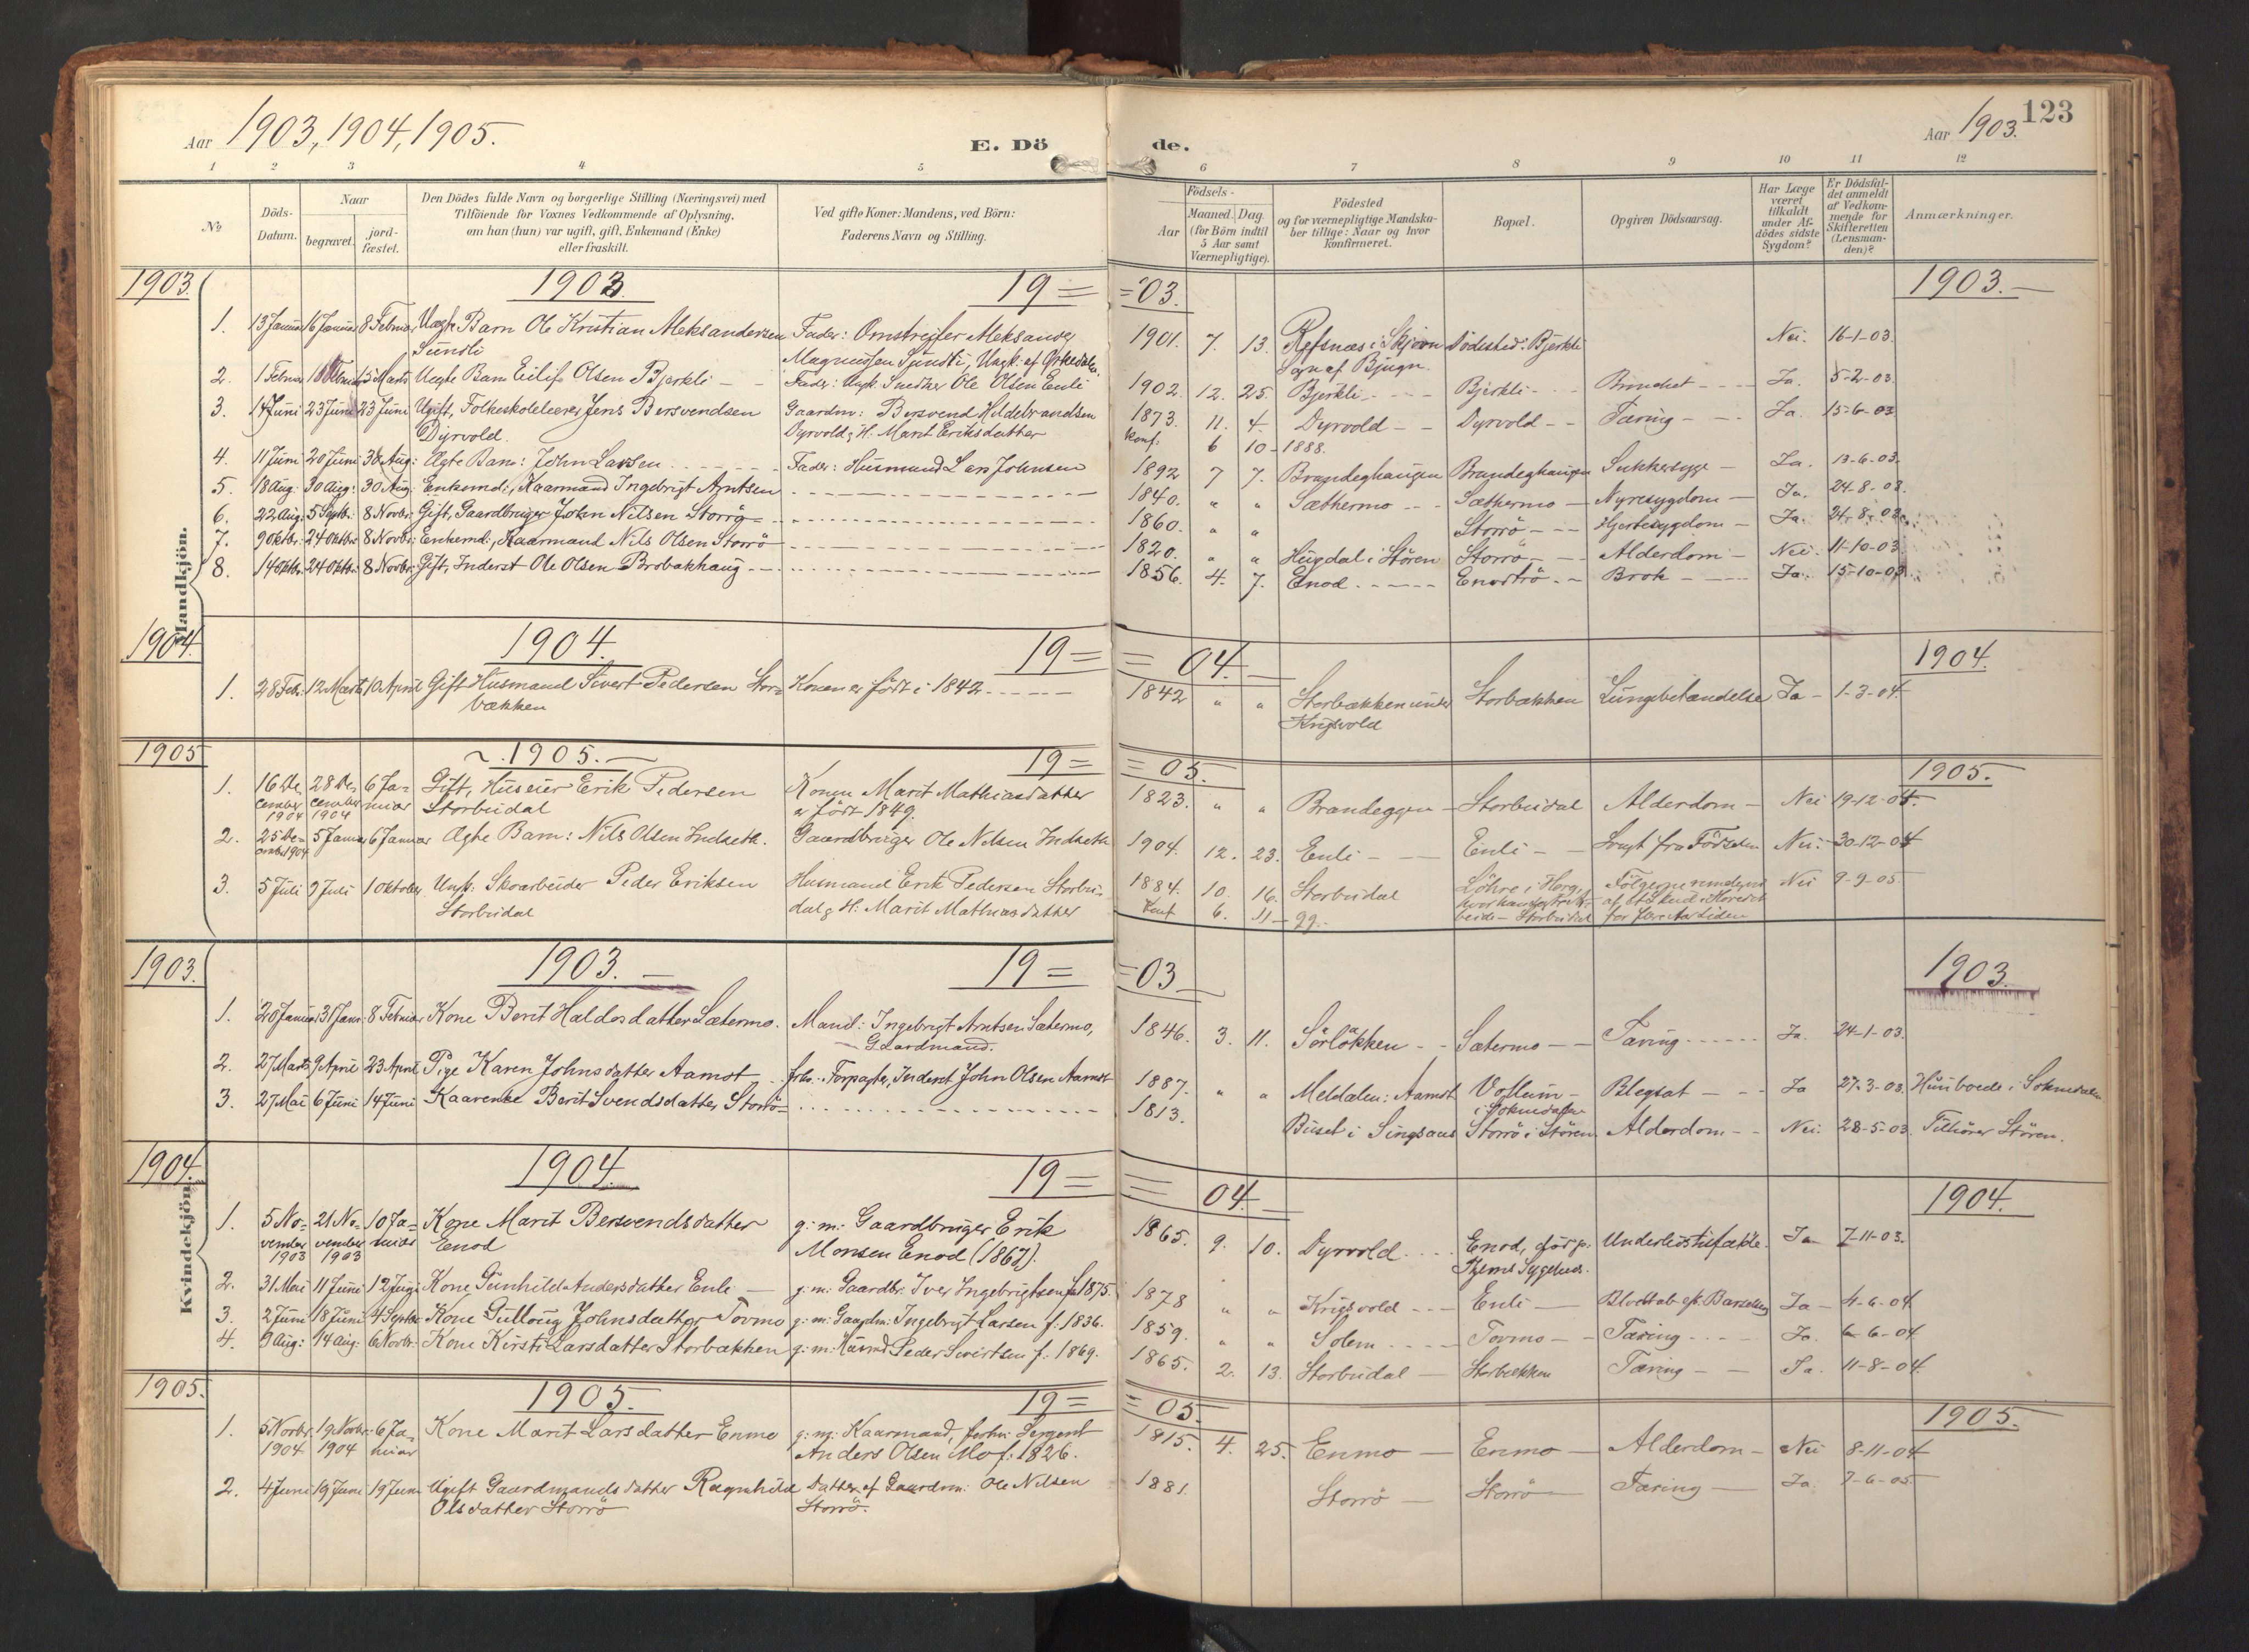 Aar 1903, 1904, 1905.
E. Dö
de.
Aar 1903.
123
1 2 3 4 5 6 7 8 9 10 11 12
№
Döds-Datum.
Naar
begravet.
jord-fæstet.
Den Dödes fulde Navn og borgerlige Stilling (Næringsvei) med
Tilföiende for Voxnes Vedkommende af Oplysning,
om han (hun) var ugift, gift, Enkemand (Enke)
eller fraskilt.
Ved gifte Koner: Mandens, ved Börn:
Faderens Navn og Stilling.
Födsels-
Aar
Maaned. Dag.
(for Börn indtil
5 Aar samt
Værnepligtige).
Födested
og for værnepligtige Mandska-
ber tillige: Naar og hvor
konfirmeret.
Bopæl.
Opgiven Dödsaarsag.
Har Læge
været
tilkaldt
under Af-
dödes sidste
Sygdom?
Er Dödsfal-
det anmeldt
af Vedkom-
mende for
Skifteretten
(Lensman-
den)?
Anmærkninger.
Mandkjön.
1903. 1903. 19 = = 03. 1903. —
1. 13 Januar 16 Januar 8 Februar Uægte Barn Ole Kristian Aleksandersen Fader: Omstreifer Aleksander 1901. 7. 13. Refsnæs i Skjörn Dödssted: Bjerkli Nei. 16-1-03.
Sundli Magnussen Sundli, Ungk. af Orkedalen. Sogn af Bjugn.
2. 1 Februar 15 Marts Uægte Barn Eilif Olsen Bjerkli — Fader: Ungk. Snedker Ole Olsen Enli 1902. 12. 25. Bjerkli Bjerkli Ja. 5-2-03.
3. 14 Juni 23 Juni 23 Juni Ugift, Folkeskolelærer Jens Bersvendsen Gaardm: Bersvend Hildebrandsen 1873. 11. 4. Dyrvold Dyrvold Tæring Ja. 15-6-03
Dyrvold. Dyrvold & H. Marit Eriksdatter Konf. 6 10 - 1888.
4. 11 Juni 20 Juni 30 Aug: Ægte Barn: John Larsen Fader: Husmand Lars Johnsen 1892 7 7. Brandeghaugen Brandeghaugen Sukkersyge — Ja. 13-6-03.
5. 18 Aug. 30 Aug: 30 Aug. Enkemd:, Kaarmand Ingebrigt Arntsen 1840. " " Sæthermo Sæthermo — Nyresygdom — Ja. 24-8-03.
6. 22 Aug: 5 Septbr: 8 Novbr: Gift, Gaardbruger John Nilsen Storrö 1860. " " Storrö Hjertesygdom — Ja. 24-8-03.
7. 9 Oktbr: 24 Oktbr: 8 Novbr: Enkemd:, Kaarmand Nils Olsen Storrö 1820. " " Hugdal i Stören Storrö Alderdom — Nei. 11-10-03.
8. 14 Oktbr. 24 Oktbr: 8 Novbr: Gift, Inderst Ole Olsen Brobakhaug 1856. 4. 7. Enod Enodtrö Brok Ja. 15-10-03.
1904. 1904. 19 = = 04. 1904.
1. 28 Feb. 12 Marts 10 April Gift Husmand Sivert Pedersen Stor= Konen er födt i 1842 1842 " " Storbækken under Storbækken Lungebetændelse Ja — 1-3-04
bækken Krigsvold
1905 ~.1905.— 19 = = 05. 1905.
1. 16 De- 28 De- 6 Ja= Gift, Huseier Erik Pedersen Konen Marit Mathiasdatter 1823. " " Brandeggen Storbudal Alderdom — Nei 19-12-04.
cember cember nuar Storbudal er födt 1849.
1904 1904
2. 25 De= 5 Januar 6 Januar Ægte Barn: Nils Olsen Indseth. Gaardbruger Ole Nilsen Indseth 1904. 12. 23. Enli Enli Svagt fra Födselen Nei. 30-12-04
cember 1904
3. 5 Juli 9 Juli 1 Oktober Ungk: Skoarbeider Peder Eriksen Husmand Erik Pedersen Storbu- 1884. 10. 16. Storbudal Löhre i Horg, Fölgerne Nei 9-9-05.
Storbudal dal & H. Marit Mathiasdatter Konf 6. 11 - 99.- Storbudal
1903. 1903. — 19 = = 03 1903.
1. 20 Januar 31 Janr. 8 Februar Kone Berit Haldosdatter Sætermo. Mand: Ingebrigt Arntsen Sætermo, 1846. 3. 11. Sörlökken Sætermo Tæring Ja. 24-1-03.
Gaardmand.
2. 27 Marts 9 April 23 April Pige Karen Johnsdatter Aamot Forpagter, Inderst John Olsen Aamot 1887. " " Meldalen: Aamot Vollum Blegsot Ja 27.3-03. Hun boede i Soknedalen
i Soknedalen
3. 27 Mai 6 Juni 14 Juni Kaarenke Berit Svendsdatter Storrö 1813. Buset i Singsaas Storrö i Stören Alderdom Nei. 28-5-03. Tilhörer Stören.
Kvindekjön
1904. 1904. 19 = = 04. 1904.
1. 5 No- 21 No- 10 Ja= Kone Marit Bersvendsdatter g: m: Gaardbruger Erik 1865. 9. 10. Dyrvold Enod, död p. Underlivstilfælde. Ja 7-11-03.
vember vember nuar Enod Monsen Enod (1867). Sygehus.
1903 1903
2. 31 Mai 11 Juni 12 Juni Kone Gunhild Andersdatter Enli — g: m: Gaardbr. Iver Ingebrigtsen f. 1875. 1878 " " Krigsvold Enli Blodtab eft. Barselseng Ja — 4-6-04.
3. 2 Juni 18 Juni 4 Septbr Kone Gullaug Johnsdatter Tovmo g: m: Gaardm: Ingebrigt Larsen f: 1836. 1859. " " Solem Tovmo Tæring Ja. 6-6-04.
4. 9 Aug: 14 Aug: 6 Novbr: Kone Kirsti Larsdatter Storbækken g: m: Husmd Peder Sivertsen f: 1869. 1865. 2. 13. Storbudal Storbækken Tæring Ja. 11-8-04.
1905. 1905. 19 = = 05. 1905.
1. 5 Novbr. 19 Novbr. 6 Ja= Kone Marit Larsdatter Enmo g: m: Kaarmand, forhv: Sergent 1815. 4. 25. Enmo Enmo Alderdom — Nei 8-11-04
1904 1904 nuar Anders Olsen Mo f: 1826.
2. 4 Juni 19 Juni 19 Juni Ugift Gaardmandsdatter Ragnhild Datter af Gaardm: Ole Nilsen 1881. Storrö Storrö Tæring — Ja. 7-6-05
Olsdatter Storrö Storrö.